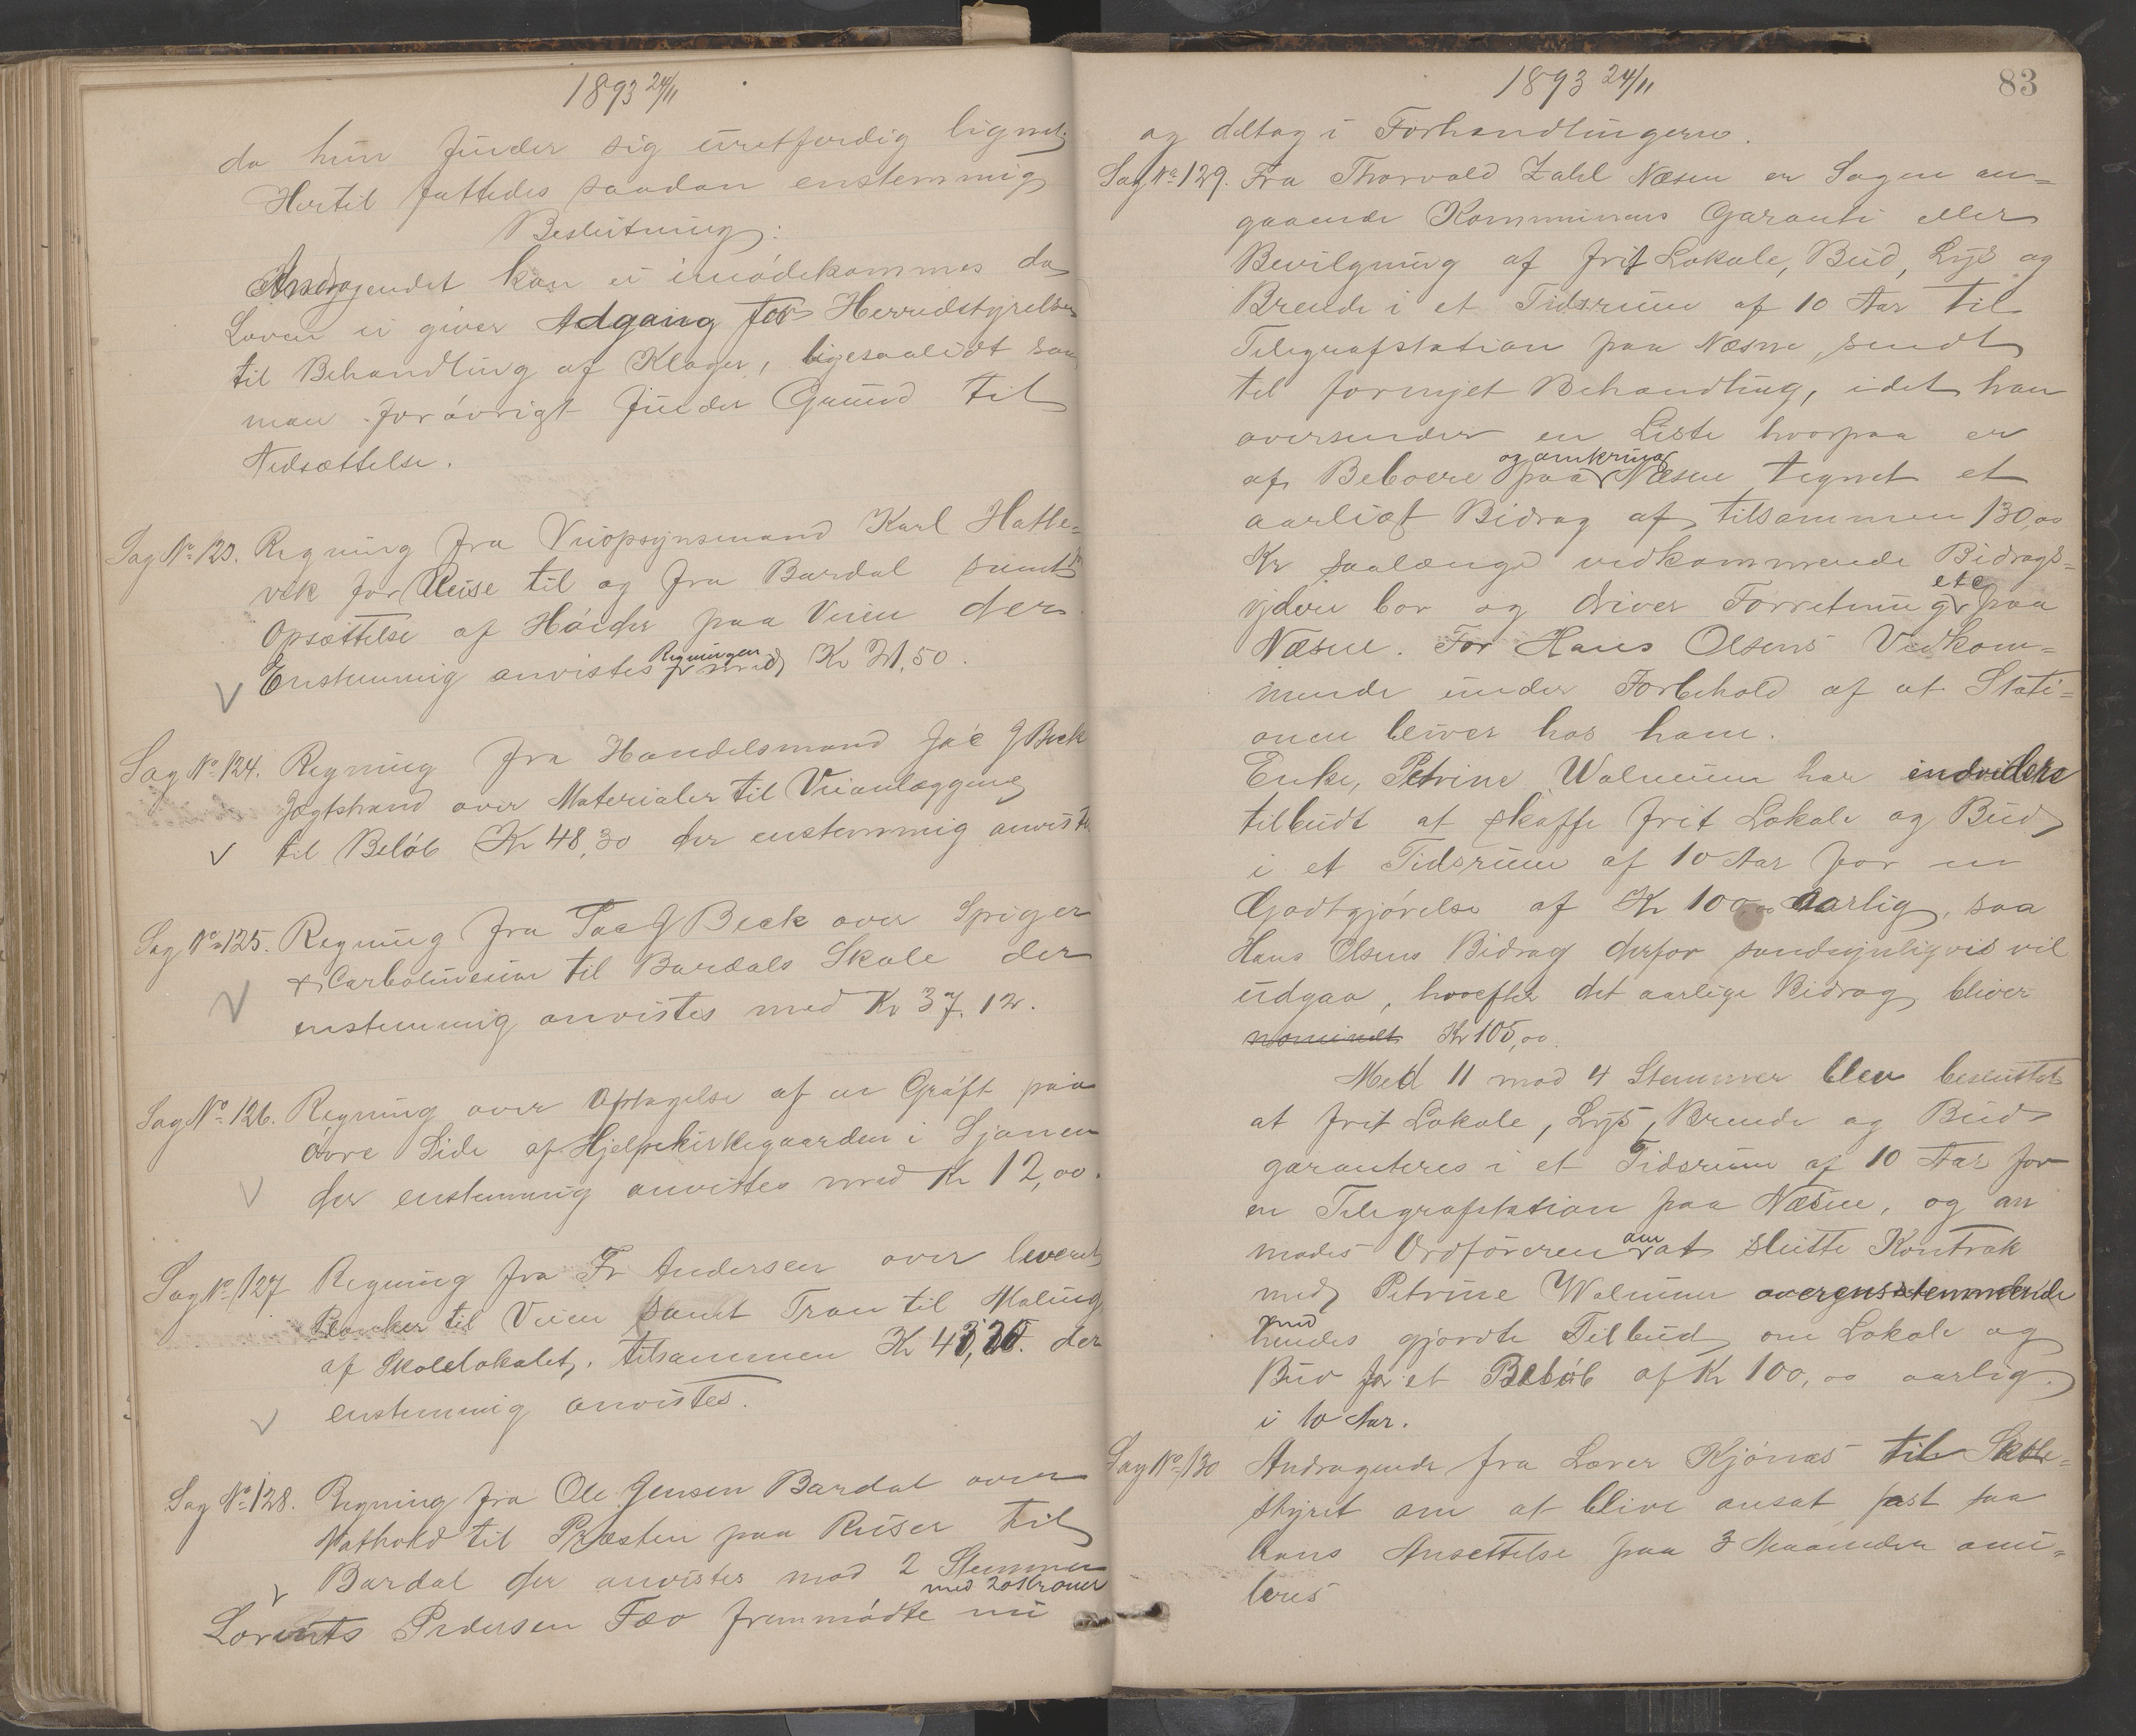 1893 24/11
da hun finder sig uretferdig lignet.
Hertil fattedes saadan enstemmig
Beslutning:
Andragendet kan ei imødekommes da
Loven ei giver Adgang for Herredstyrelsen
til Behandling af Klager, ligesaalidt som
man forøvrigt finder Grund til
Nedsættelse.
Sag No 123. Regning fra Veiopsynsmand Karl Hatle=
vik for Reise til og fra Bardal samt
Opsættelse af paa Veien der
Regningen
Enstemmig anvistes med Kr 21,50.
Sag No 124. Regning fra Handelsmand Jac J Beck
Jægtstrand over Materialer til Veianlægging
til Beløb Kr 48,30 der enstemmig anvistes
Sag No 125. Regning fra Jac J Beck over Spiger
& Carbolineum til Bardals Skole der
enstemmig anvistes med Kr 37,12.
Sag No 126. Regning over Optagelse af en Grøft paa
øvre Side af Hjelpekirkegaarden i Sjonen
der enstemmig anvistes med Kr 12,00.
Sag No 127 Regning fra Fr Andersen over leveret
Planker til Veien samt Tran til Maling
af Skolelokalet, tilsammen Kr der
enstemmig anvistes.
Sag No 128. Regning fra Ole Jensen Bardal over
Nathold til Præsten paa Reiser til
Bardal der anvistes mod 2 Stemmer
med 20 Kroner
Lorents Pedersen Fæø fremmødte nu
1893 24/11
83
og deltog i Forhandlingerne.
Sag No 129. Fra Thorvald Zahl Næsne er Sagen an=
gaaende Kommunens Garanti eller
Bevilgning af frit Lokale, Bud, Lys og
Brende i et Tidsrum af 10 Aar til
Telegrafstation paa Næsne, sendt
til fornyet Behandling, idet han
oversender en Liste hvorpaa er
og omkring
af Beboere paa Næsne tegnet et
aarligt Bidrag af tilsammen 130,00
Kr saalænge vedkommende Bidrags=
etc
ydere bor og driver Forretning paa
Næsne. For Hans Olsens Vedkom=
mende under Forbehold af at Stati=
onen bliver hos ham.
Enke, Petrine Walnum har endvidere
tilbudt at skaffe frit Lokale og Bud
i et Tidsrum af 10 Aar for en
Godtgjørelse af Kr 100,00 aarlig, saa
Hans Olsens Bidrag derfor sandsynligvis vil
udgaa, hvorefter det aarlige Bidrag bliver
Kr 105,00.
Med 11 mod 4 Stemmer blev besluttet
at frit Lokale, Lys, Brende og Bud
garanteres i et Tidsrum af 10 Aar for
en Telegrafstation paa Næsne, og an
om
modes Ordføreren at slutte Kontrak
med Petrine Walnum overensstemmende
med
hendes gjordte Tilbud om Lokale og
Bud for et Beløb af Kr 100,00 aarlig
i 10 Aar.
Sag No 130 Andragende fra Lærer Kjønnæs til Skole=
styret om at blive ansat fast saa
hans Ansettelse paa 3 Maaneder anu=
leres